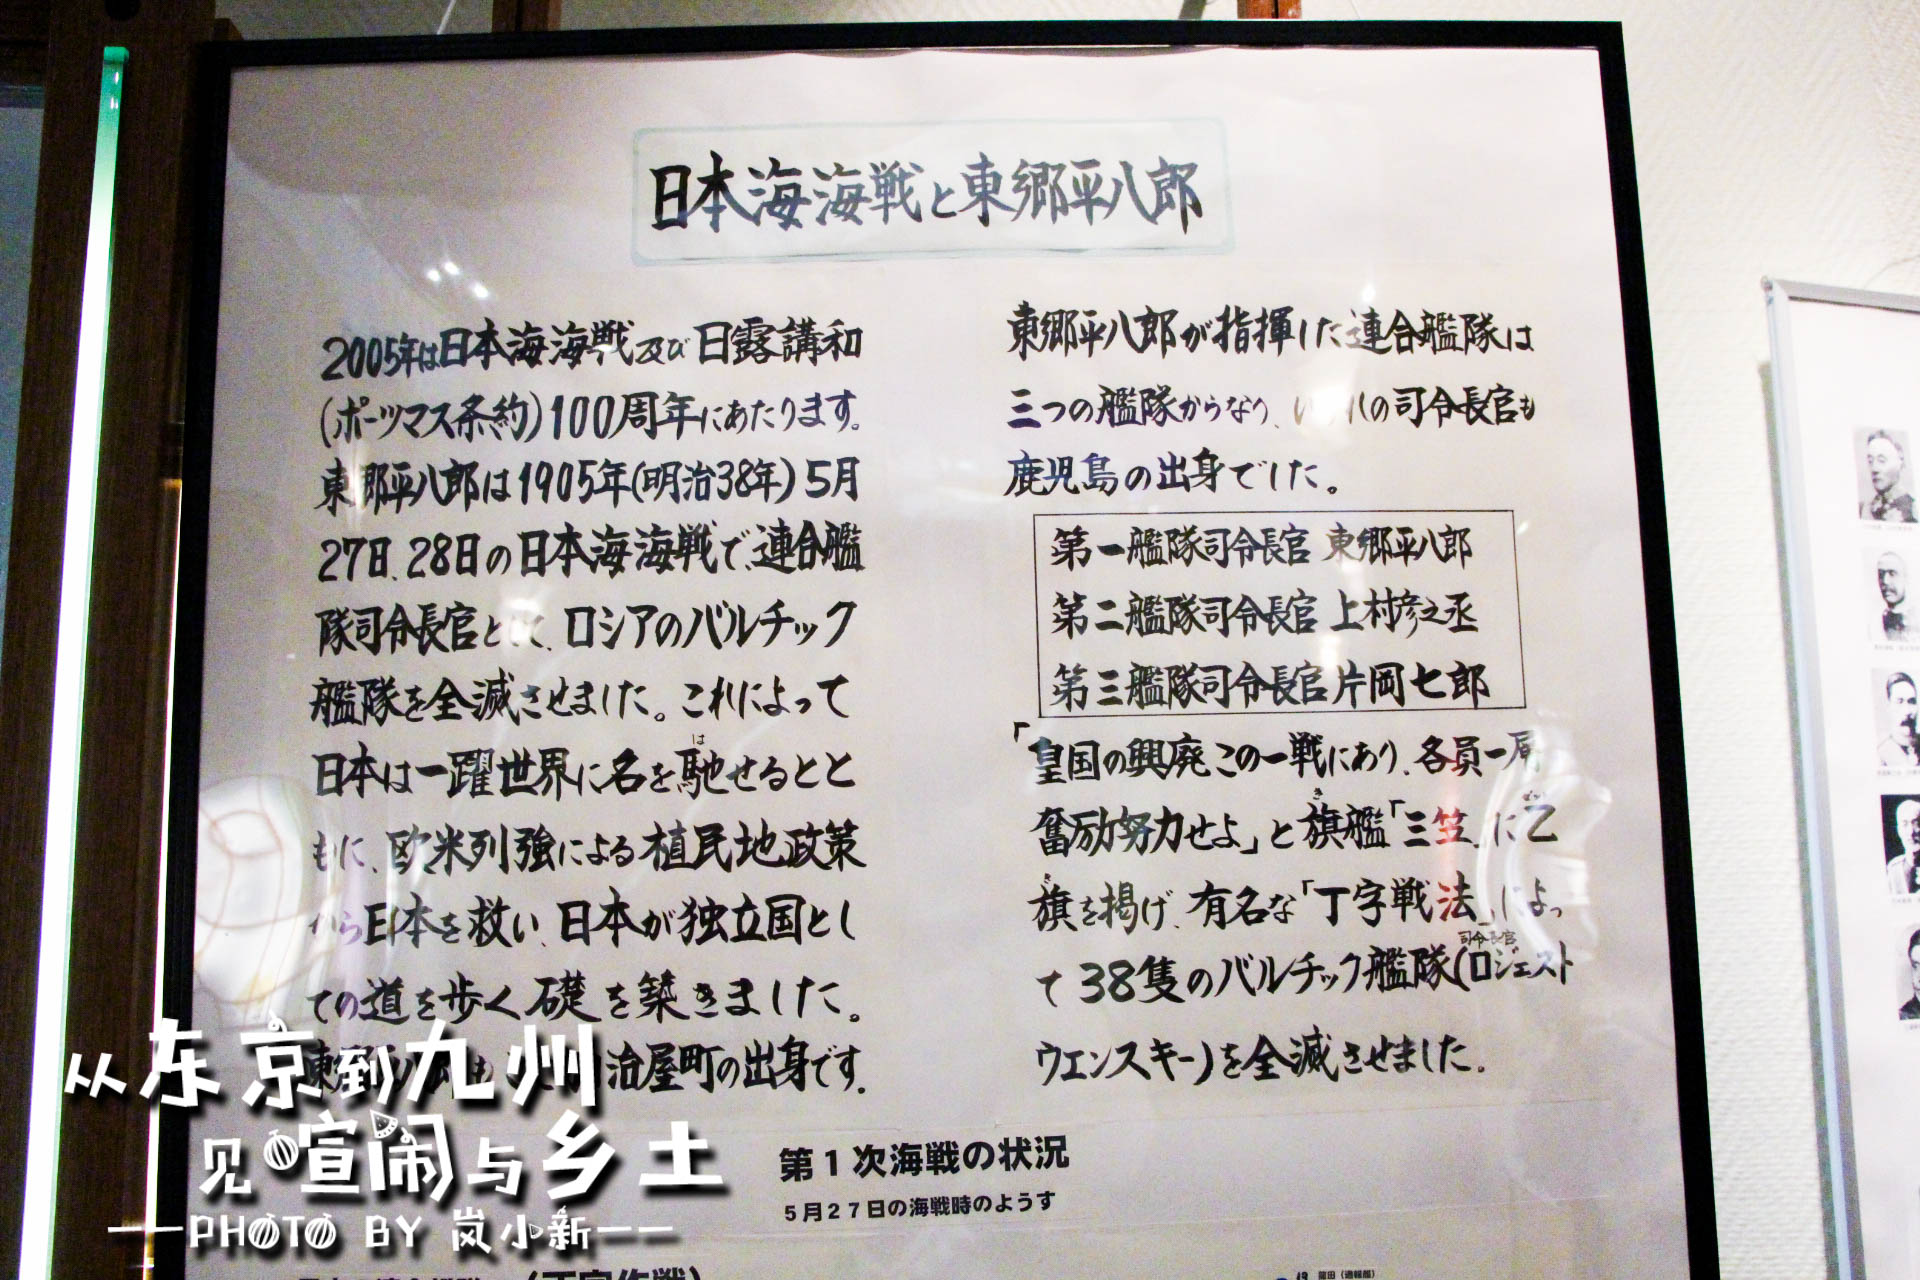 日本海海戦と東郷平八郎
2005年は日本海海戦及び日露講和
(ポーツマス条約)100周年にあたります。
東郷平八郎は1905年(明治38年)5月
27日、28日の日本海海戦で、連合艦
隊司令長官として、ロシアのバルチック
艦隊を全滅させました。これによって
日本は一躍世界に名を馳せるとと
は
もに、欧米列強による植民地政策
から日本を救い、日本が独立国とし
ての道を歩く礎を築きました。
治屋町の出身です。
東郷平八郎が指揮した連合艦隊は
三つの艦隊からなり、いずれの司令長官も
鹿児島の出身でした。
第一艦隊司令長官 東郷平八郎
第二艦隊司令長官 上村彦之丞
第三艦隊司令長官 片岡七郎
「皇国の興廃この一戦にあり、各員一層
奮励努力せよ」と旗艦「三笠」にZ
き
旗を掲げ、有名な「丁字戦法」によっ
き
て38隻のバルチック艦隊(ロジェスト
司令長官
ウェンスキー)を全滅させました。
第1次海戦の状況
5月27日の海戦時のようす
从东京到九州
见喧闹与乡土
——PHOTO BY 岚小新——